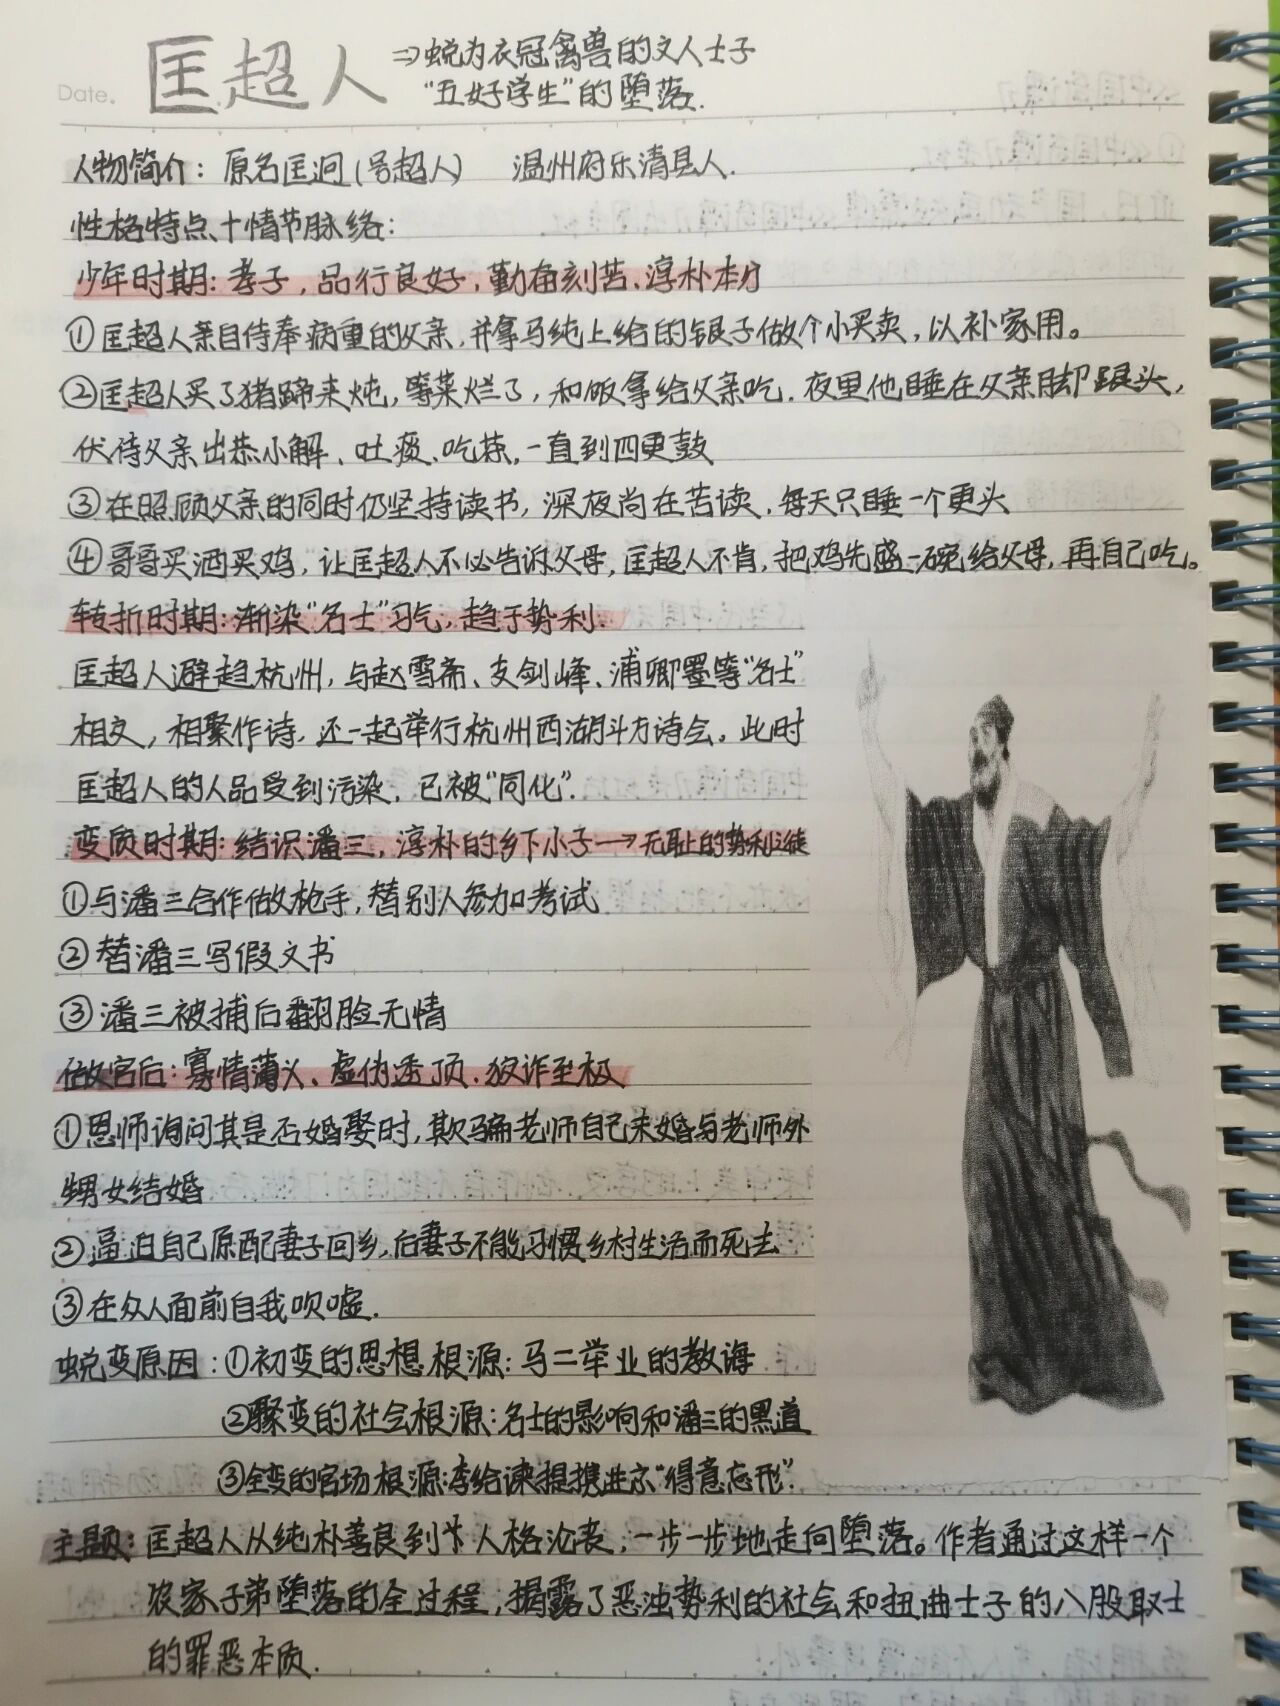 Date.
匡超人 ⇒蜕为衣冠禽兽的文人士子
"五好学生"的堕落.
人物简介：原名匡迥(号超人) 温州府乐清县人.
性格特点+情节脉络：
少年时期：孝子，品行良好，勤奋刻苦、淳朴本分
①匡超人亲自侍奉病重的父亲，并拿马纯上给的银子做个小买卖，以补家用。
②匡超人买了猪蹄来炖，等菜烂了，和饭拿给父亲吃. 夜里他睡在父亲脚跟头，
伏侍父亲出恭小解、吐痰、吃茶，一直到四更鼓
③在照顾父亲的同时仍坚持读书，深夜尚在苦读，每天只睡一个更头
④哥哥买酒买鸡，让匡超人不必告诉父母，匡超人不肯，把鸡先盛一碗给父母，再自己吃。
转折时期：渐染"名士"习气，趋于势利.
匡超人避趋杭州，与赵雪斋、支剑峰、浦卿墨等"名士"
相交，相聚作诗，还一起举行杭州西湖斗方诗会。此时
匡超人的人品受到污染，已被"同化".
变质时期：结识潘三，淳朴的乡下小子→无耻的势利之徒
①与潘三合作做枪手，替别人参加考试
②替潘三写假文书
③潘三被捕后翻脸无情
做官后：寡情薄义、虚伪透顶、狡诈至极
①恩师询问其是否婚娶时，欺骗老师自己未婚与老师外
甥女结婚
②逼迫自己原配妻子回乡，后妻子不能习惯乡村生活而死去
③在众人面前自我吹嘘.
蜕变原因：①初变的思想根源：马二举业的教诲
②骤变的社会根源：名士的影响和潘三的黑道
③全变的官场根源：李给谏提携进京"得意忘形".
主题：匡超人从纯朴善良到人格沦丧，一步一步地走向堕落。作者通过这样一个
农家子弟堕落的全过程，揭露了恶浊势利的社会和扭曲士子的八股取士
的罪恶本质.